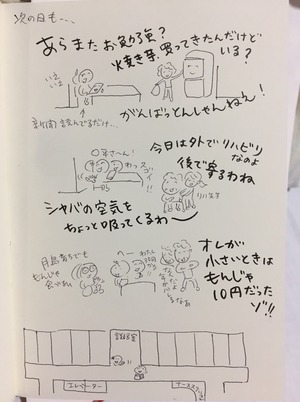 次の日も・・・
あらまたお勉強?
焼き芋、買ってきたんだけど
いる?
いえいえ
新聞読んでるだけ…
がんばっとんしゃんねぇ!
今日は外でリハビリ
なのよ
後で寄するわね
〇子さーん!
わっ
スゴイ
リハ先生
シャバの空気を
ちょっと吸ってくるわ〜
月島育ちでも
もんじゃ
食べれん
へー
オレが
小さいときは
もんじゃ
10円だった
ゾ!!
談話室
エレベーター
ナースステーション